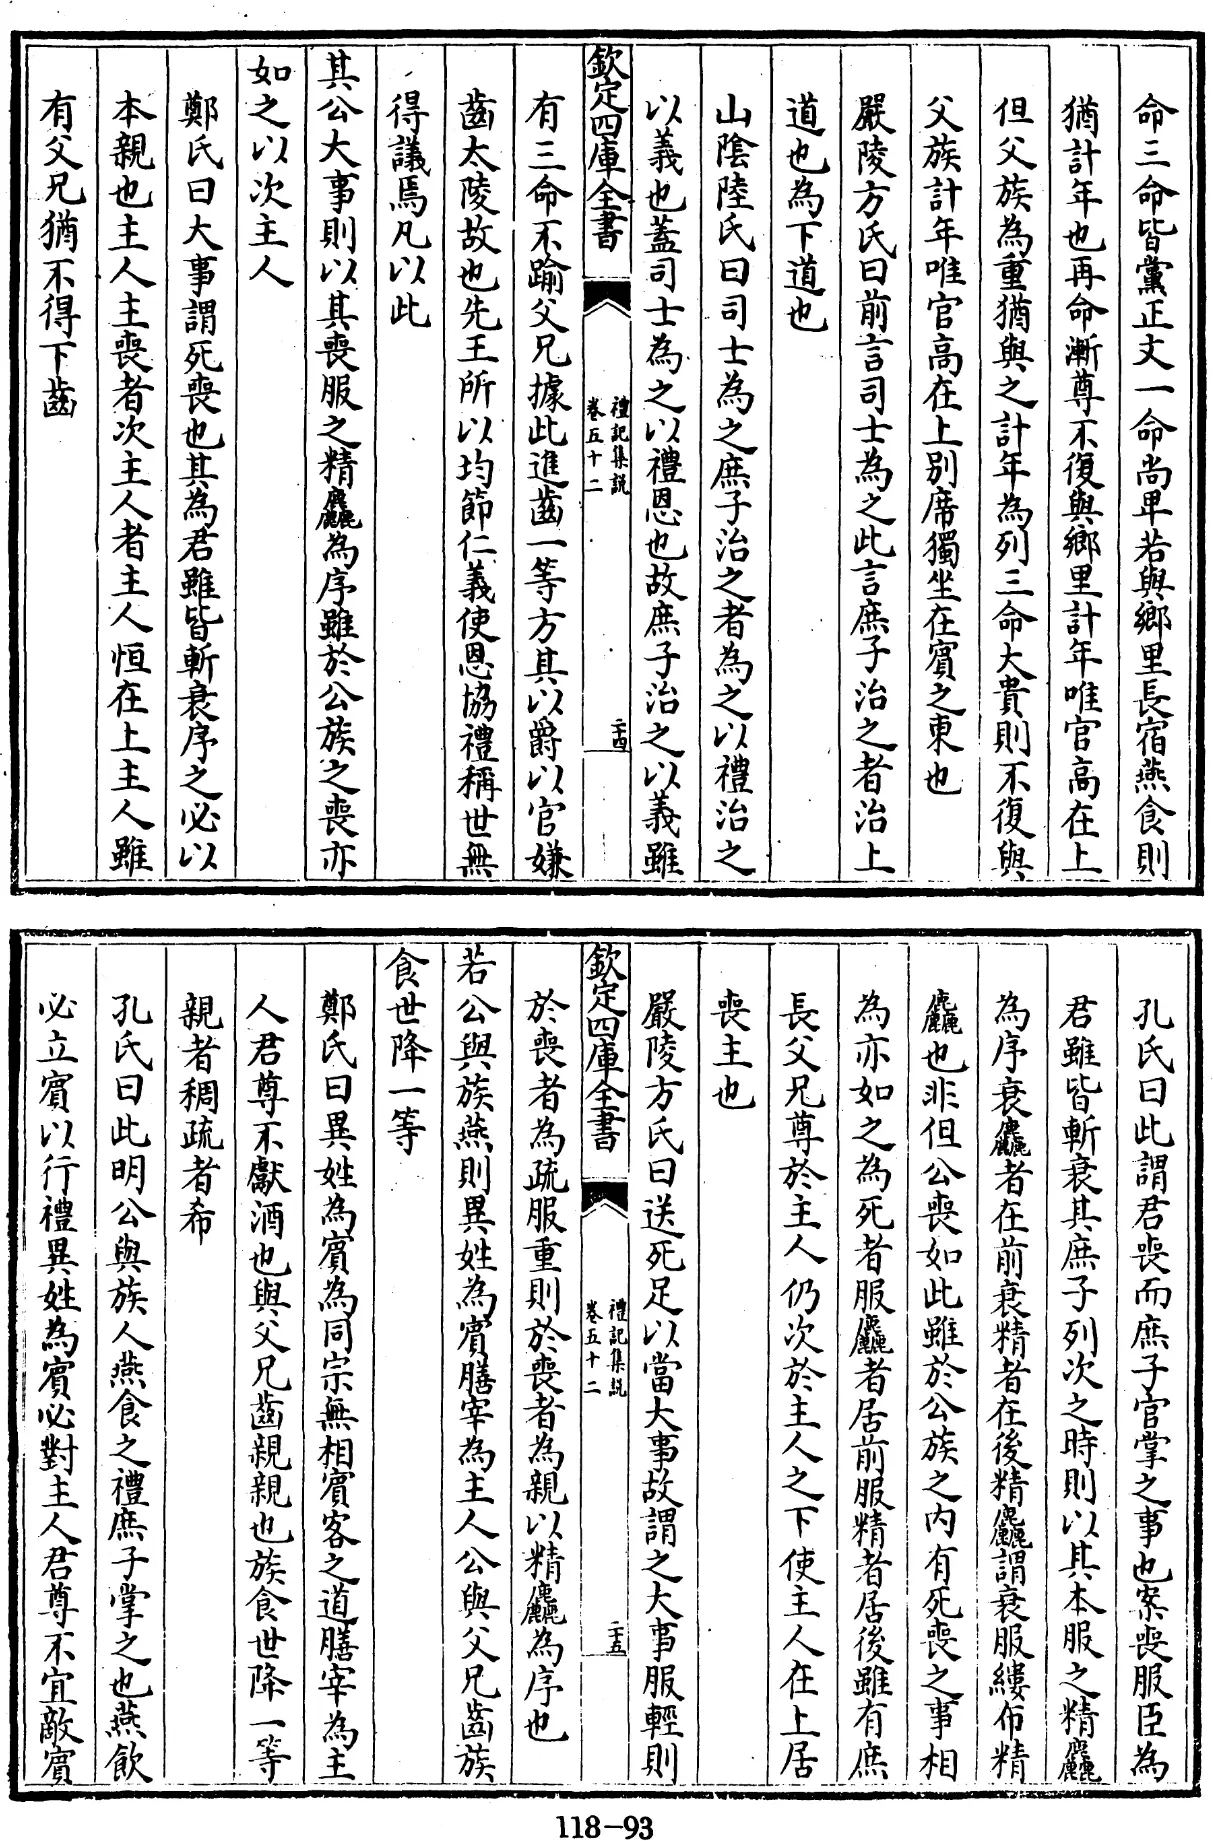 命三命皆黨正文一命尚卑若與鄉里長宿燕食則
猶計年也再命漸尊不復與鄉里計年唯官高在上
但父族為重猶與之計年為列三命大貴則不復與
父族計年唯官高在上別席獨坐在賓之東也
嚴陵方氏曰前言司士為之此言庶子治之者治上
道也為下道也
山陰陸氏曰司士為之庶子治之者為之以禮治之
以義也蓋司士為之以禮恩也故庶子治之以義雖
欽定四庫全書
禮記集說
卷五十二
二十四
有三命不踰父兄據此進齒一等方其以爵以官嫌
齒太陵故也先王所以均節仁義使恩協禮稱世無
得議焉凡以此
其公大事則以其喪服之精麤為序雖於公族之喪亦
如之以次主人
鄭氏曰大事謂死喪也其為君雖皆斬衰序之必以
本親也主人主喪者次主人者主人恒在上主人雖
有父兄猶不得下齒
孔氏曰此謂君喪而庶子官掌之事也案喪服臣為
君雖皆斬衰其庶子列次之時則以其本服之精麤
為序衰麤者在前衰精者在後精麤謂衰服縷布精
麤也非但公喪如此雖於公族之內有死喪之事相
為亦如之為死者服麤者居前服精者居後雖有庶
長父兄尊於主人仍次於主人之下使主人在上居
喪主也
嚴陵方氏曰送死足以當大事故謂之大事服輕則
欽定四庫全書
禮記集說
卷五十二
二十五
於喪者為疏服重則於喪者為親以精麤為序也
若公與族燕則異姓為賓膳宰為主人公與父兄齒族
食世降一等
鄭氏曰異姓為賓為同宗無相賓客之道膳宰為主
人君尊不獻酒也與父兄齒親親也族食世降一等
親者稠疏者希
孔氏曰此明公與族人燕食之禮庶子掌之也燕飲
必立賓以行禮異姓為賓必對主人君尊不宜敵賓
118-93